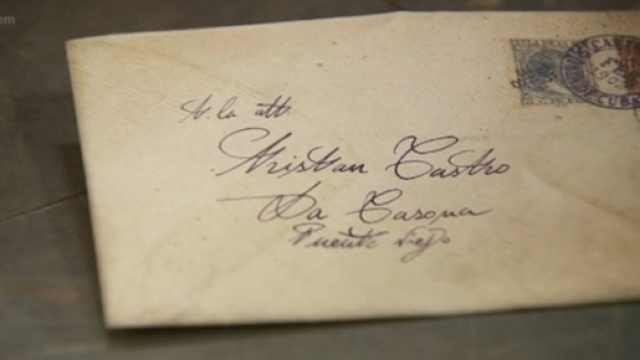 .com
A la att.
Tristan Castro
La Casona
Puente Viejo
CUBA